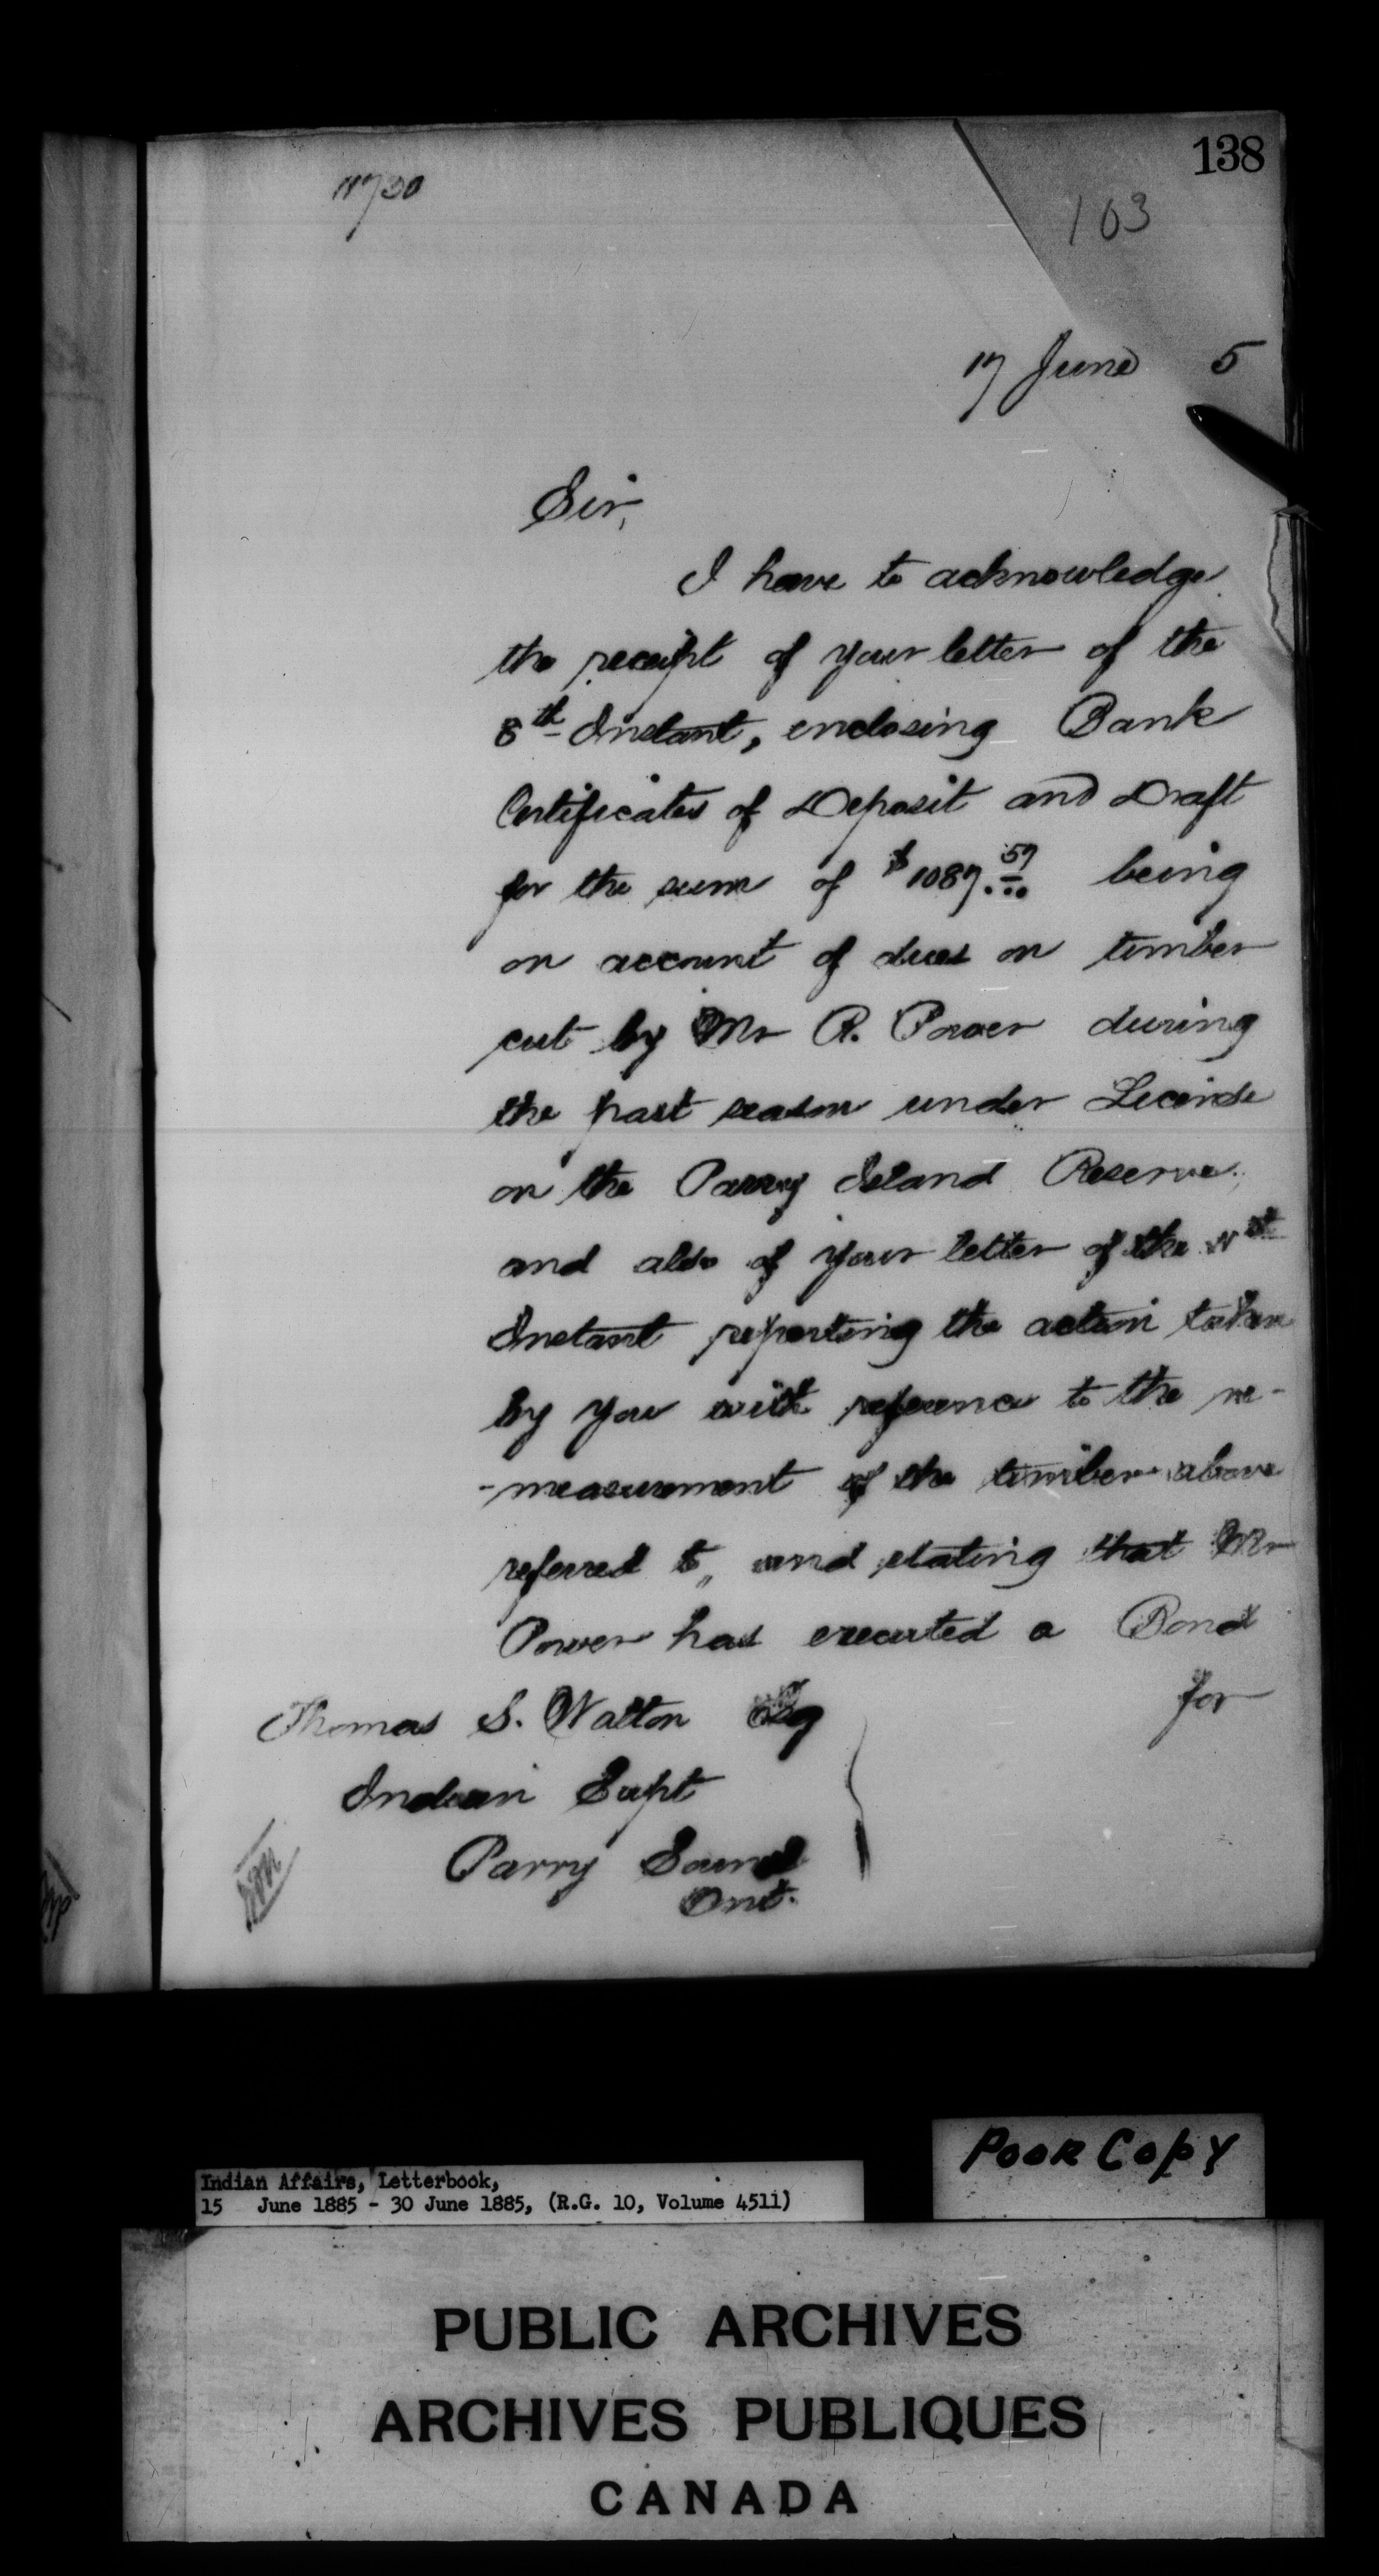 138
11730
103
17 June 5
Sir,
I have to acknowledge
the receipt of your letter of the
8th Instant, enclosing Bank
Certificates of Deposit and Draft
for the sum of $1087.57 being
on account of dues on timber
cut by Mr R. Power during
the past season under License
on the Parry Island Reserve,
and also of your letter of the
Instant reporting the action taken
by you with reference to the re-
-measurement of the timber above
referred to, and stating that Mr
Power has executed a Bond
for
Thomas S. Walton Esq
Indian Supt
Parry Sound
Ont.
Poor Copy
Indian Affairs, Letterbook,
15 June 1885 - 30 June 1885, (R.G. 10, Volume 4511)
PUBLIC ARCHIVES
ARCHIVES PUBLIQUES
CANADA